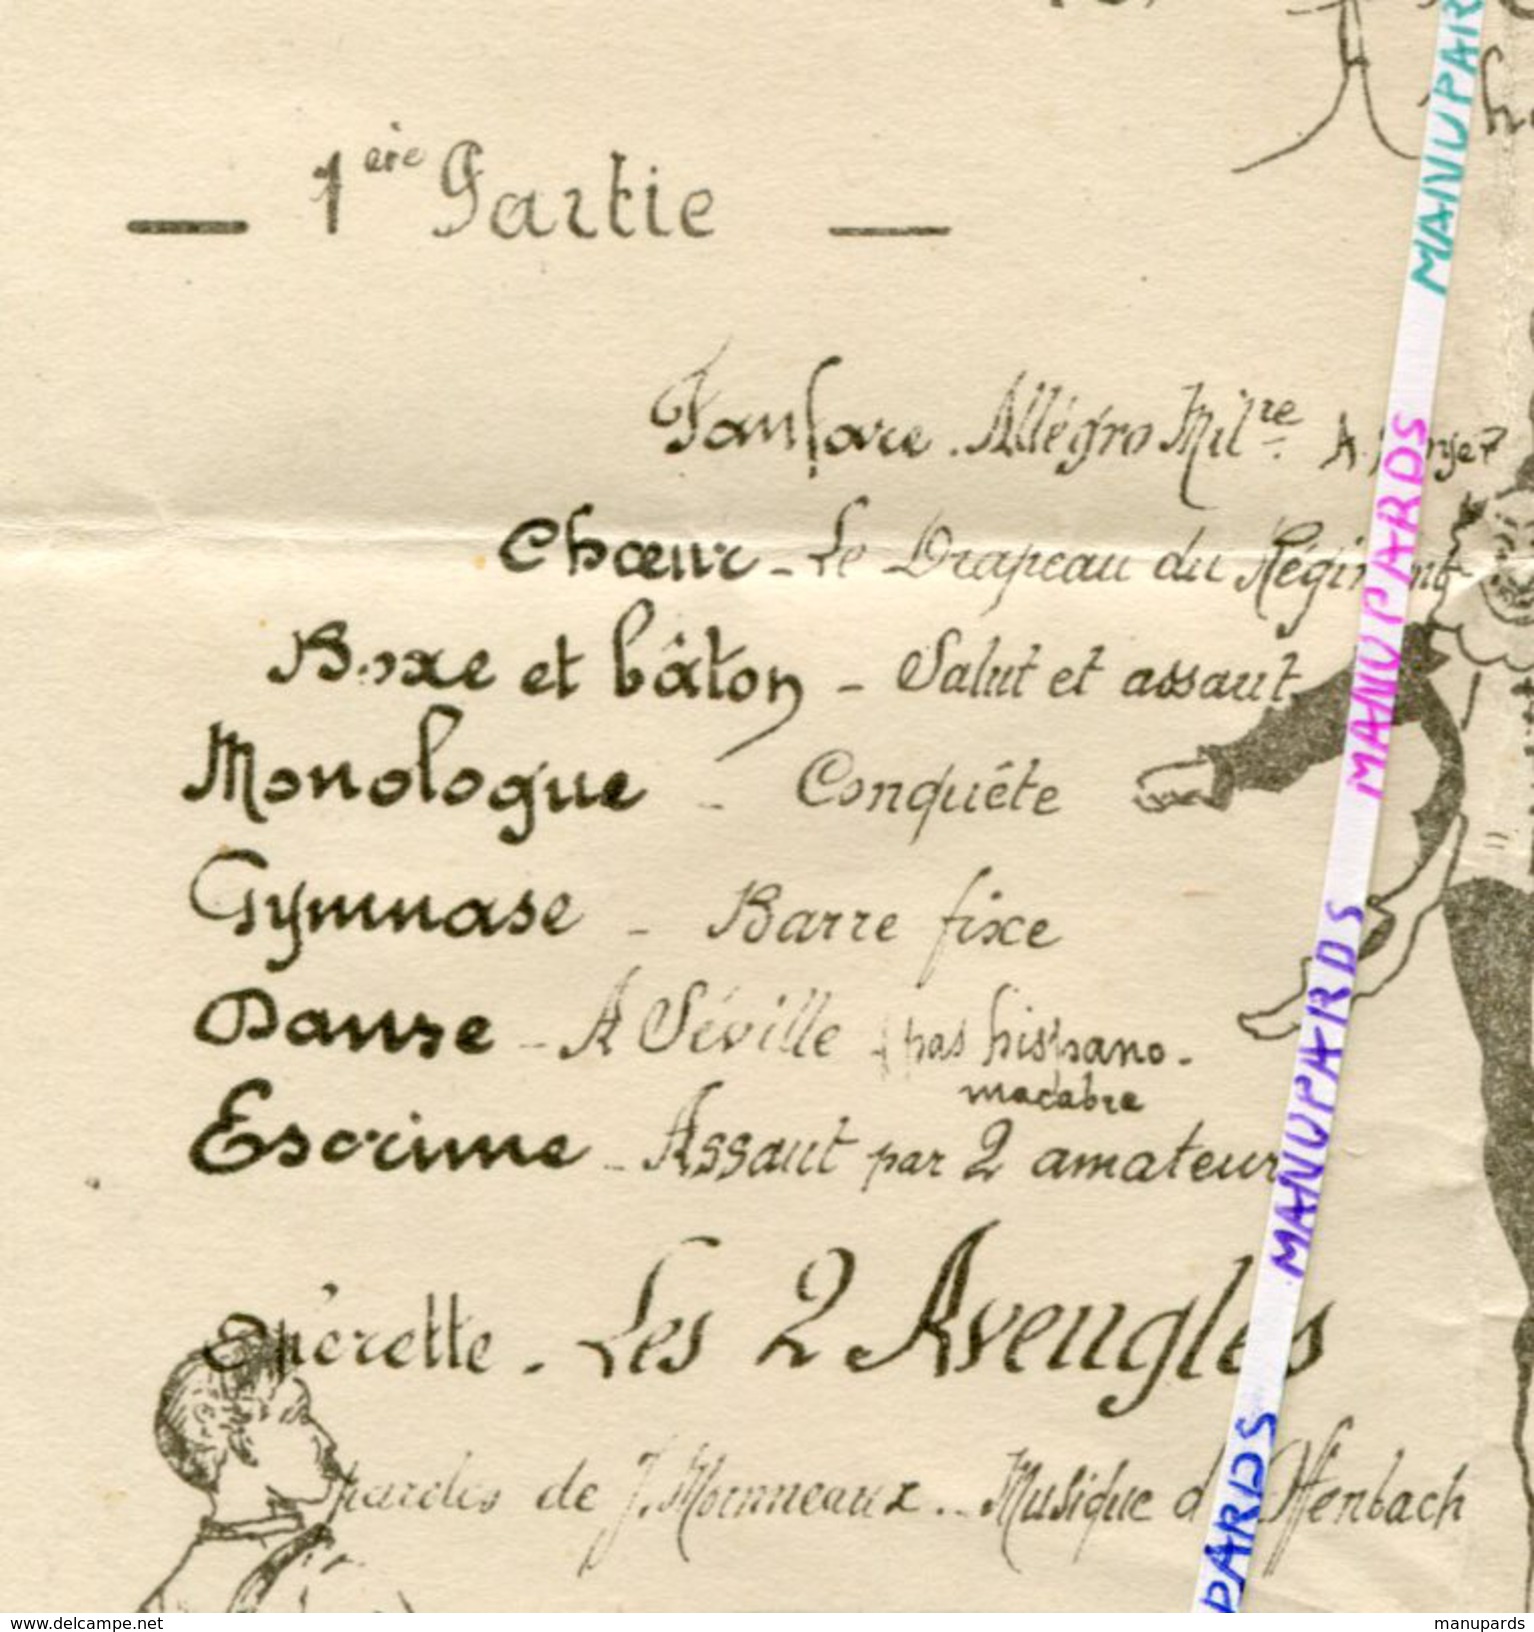 1ère Partie
Fanfare. Allégro Milre A.
Chœur - Le Drapeau du
Boxe et bâton - Salut et assaut
Monologue - Conquête
Gymnase - Barre fixe
Danse - A Séville (pas hispano-
macabre
Escrime - Assaut par 2 amateur
Opérette. Les 2 Aveugles
paroles de J. Moinneaux. - Musique d Offenbach
MANUPAR
MANUPARDS
MANUPARDS
MANUPARDS
MANUPARDS
PARDS
www.delcampe.net
manupards